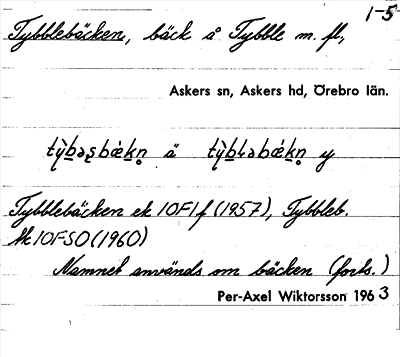 1-5
Tybblebäcken, bäck å Tybble m. fl,
Askers sn, Askers hd, Örebro län.
ä y
Tybblebäcken ek 10F1f (1957), Tybbleb.
10F SO (1960)
Namnet används om bäcken (forts.)
Per-Axel Wiktorsson 1963